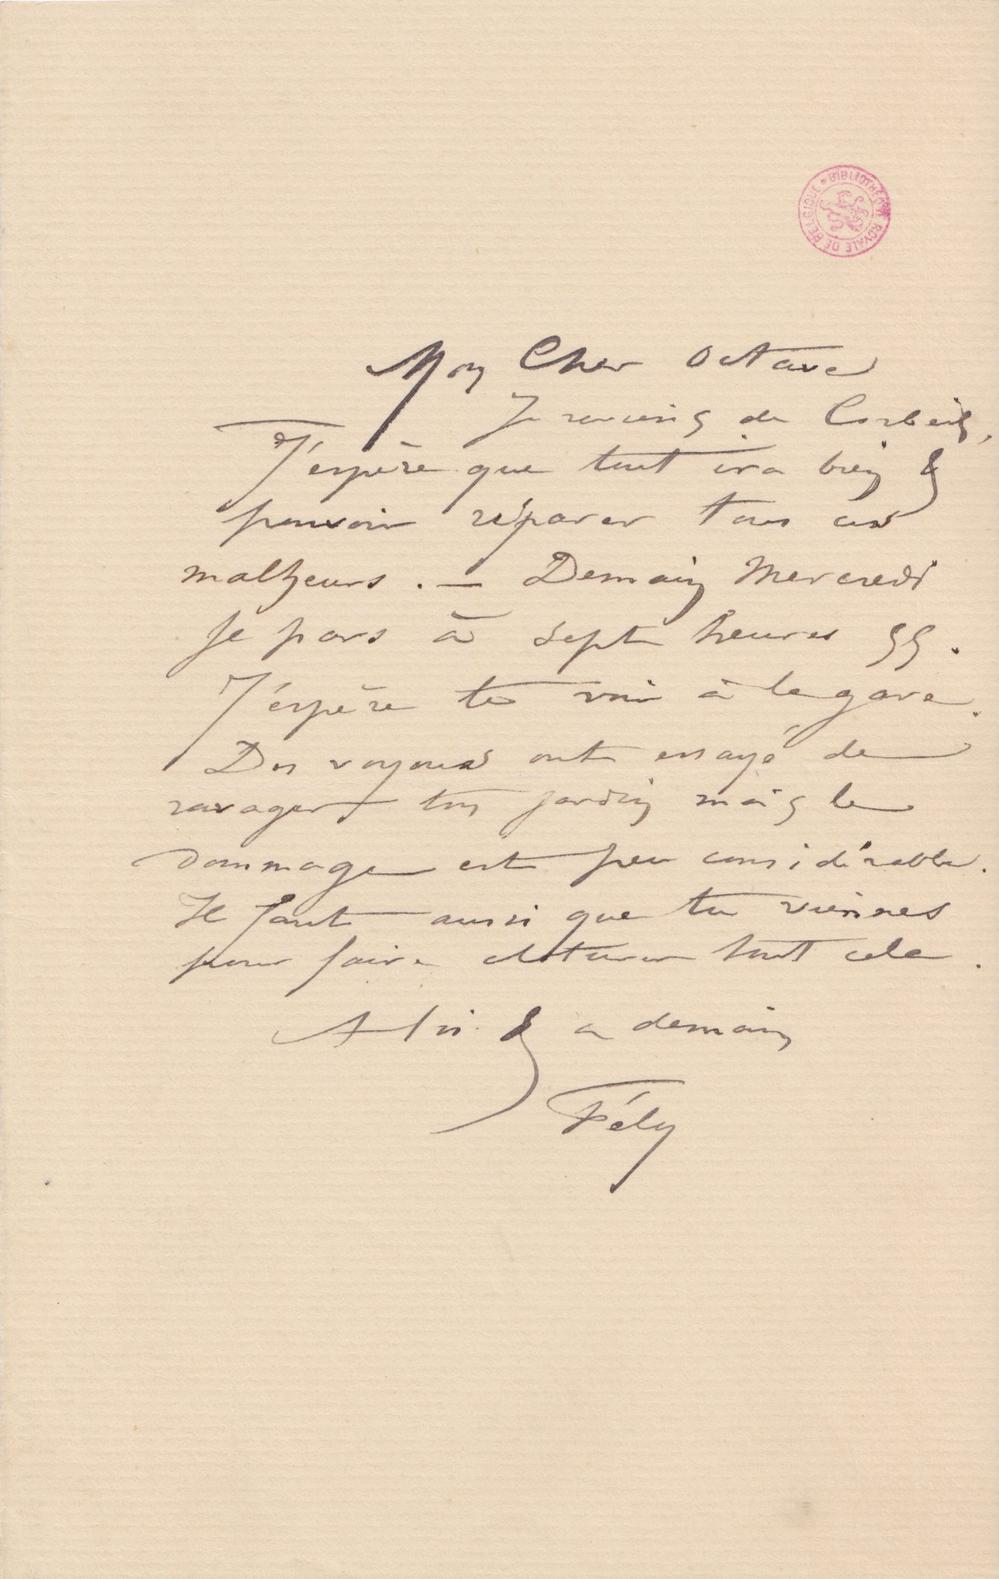 BIBLIOTHÈQUE ROYALE DE BELGIQUE
Mon Cher Octave
Je reviens de Corbeil,
J'espère que tout ira bien &
pouvoir réparer tous ces
malheurs. — Demain Mercredi
je pars à sept heures 55.
J'espère te voir à la gare.
Des voyous ont essayé de
ravager ton jardin mais le
dommage est peu considérable.
Il faut aussi que tu viennes
pour faire cloturer tout cela.
A toi & a demain
Fély